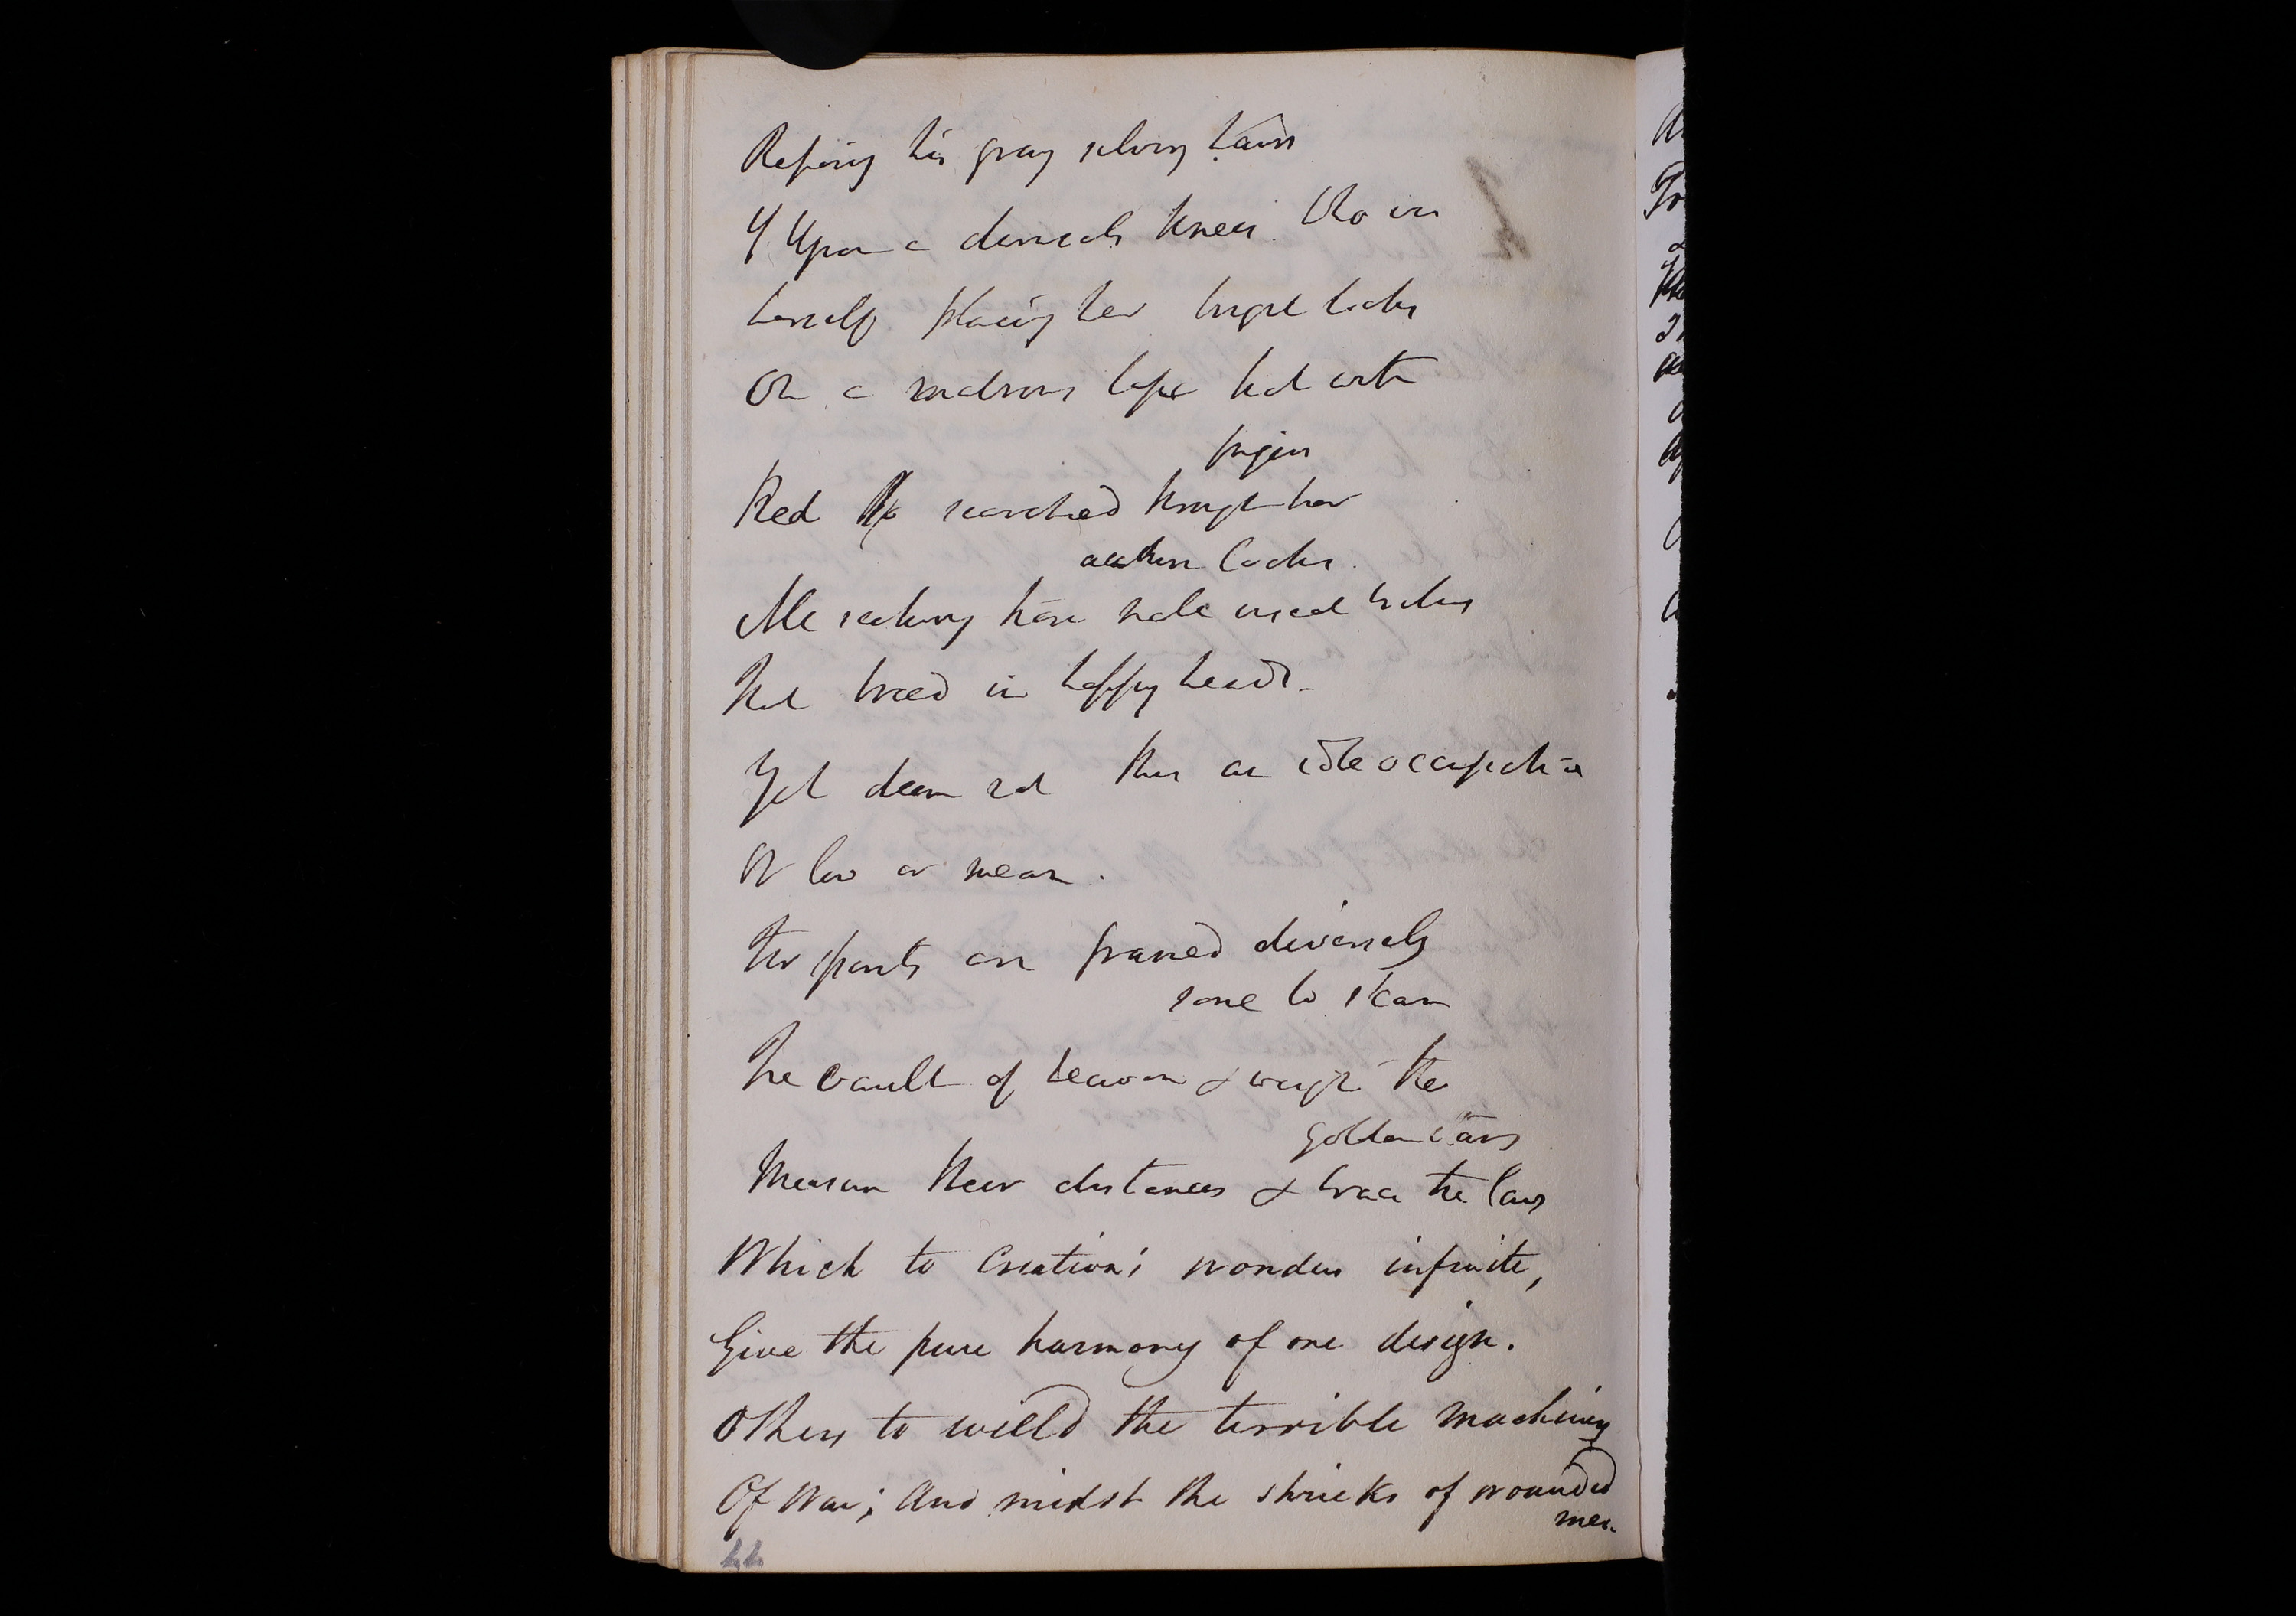 Reposing his gray silvery hairs
Upon a damsels knees. Who in
herself placing her bright locks
On a matrons lape that with
fingers
Red searched through her
auburn locks
All seeking those sable
That breed in happy heads.
Yet deem not this an idle occupation
Or low or mean.
Our spirits are framed diversely
some to scan
The vault of heaven & weigh the
golden stars
Measure their distances & trace the laws
Which to Creation's wonders infinite,
Give the pure harmony of one design.
Others to wield the terrible machinery
Of War; And midst the shrieks of wounded
men.
44